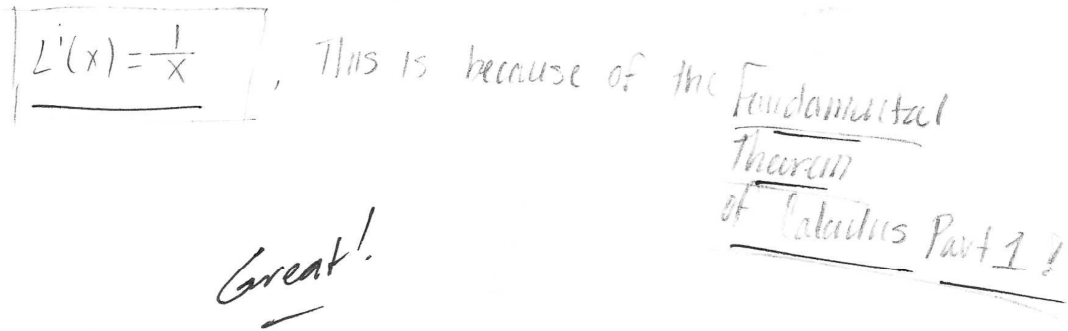 L'(x) = 1/x , This is because of the Fundamental
Theorem
of Calculus Part 1!
Great!